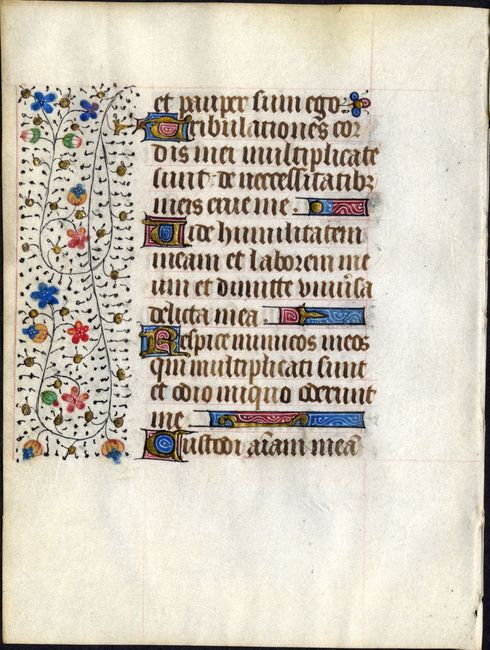 et pauper sum ego.
Tribulationes cor
dis mei multiplicate
sunt de necessitatibꝫ
meis erue me.
Uide humilitatem
meam et laborem me
um et dimitte vniu̇sa
delicta mea.
Respice inimicos meos
qm̄ multiplicati sunt
et odio iniquo oderunt
me.
Custodi aīam meā